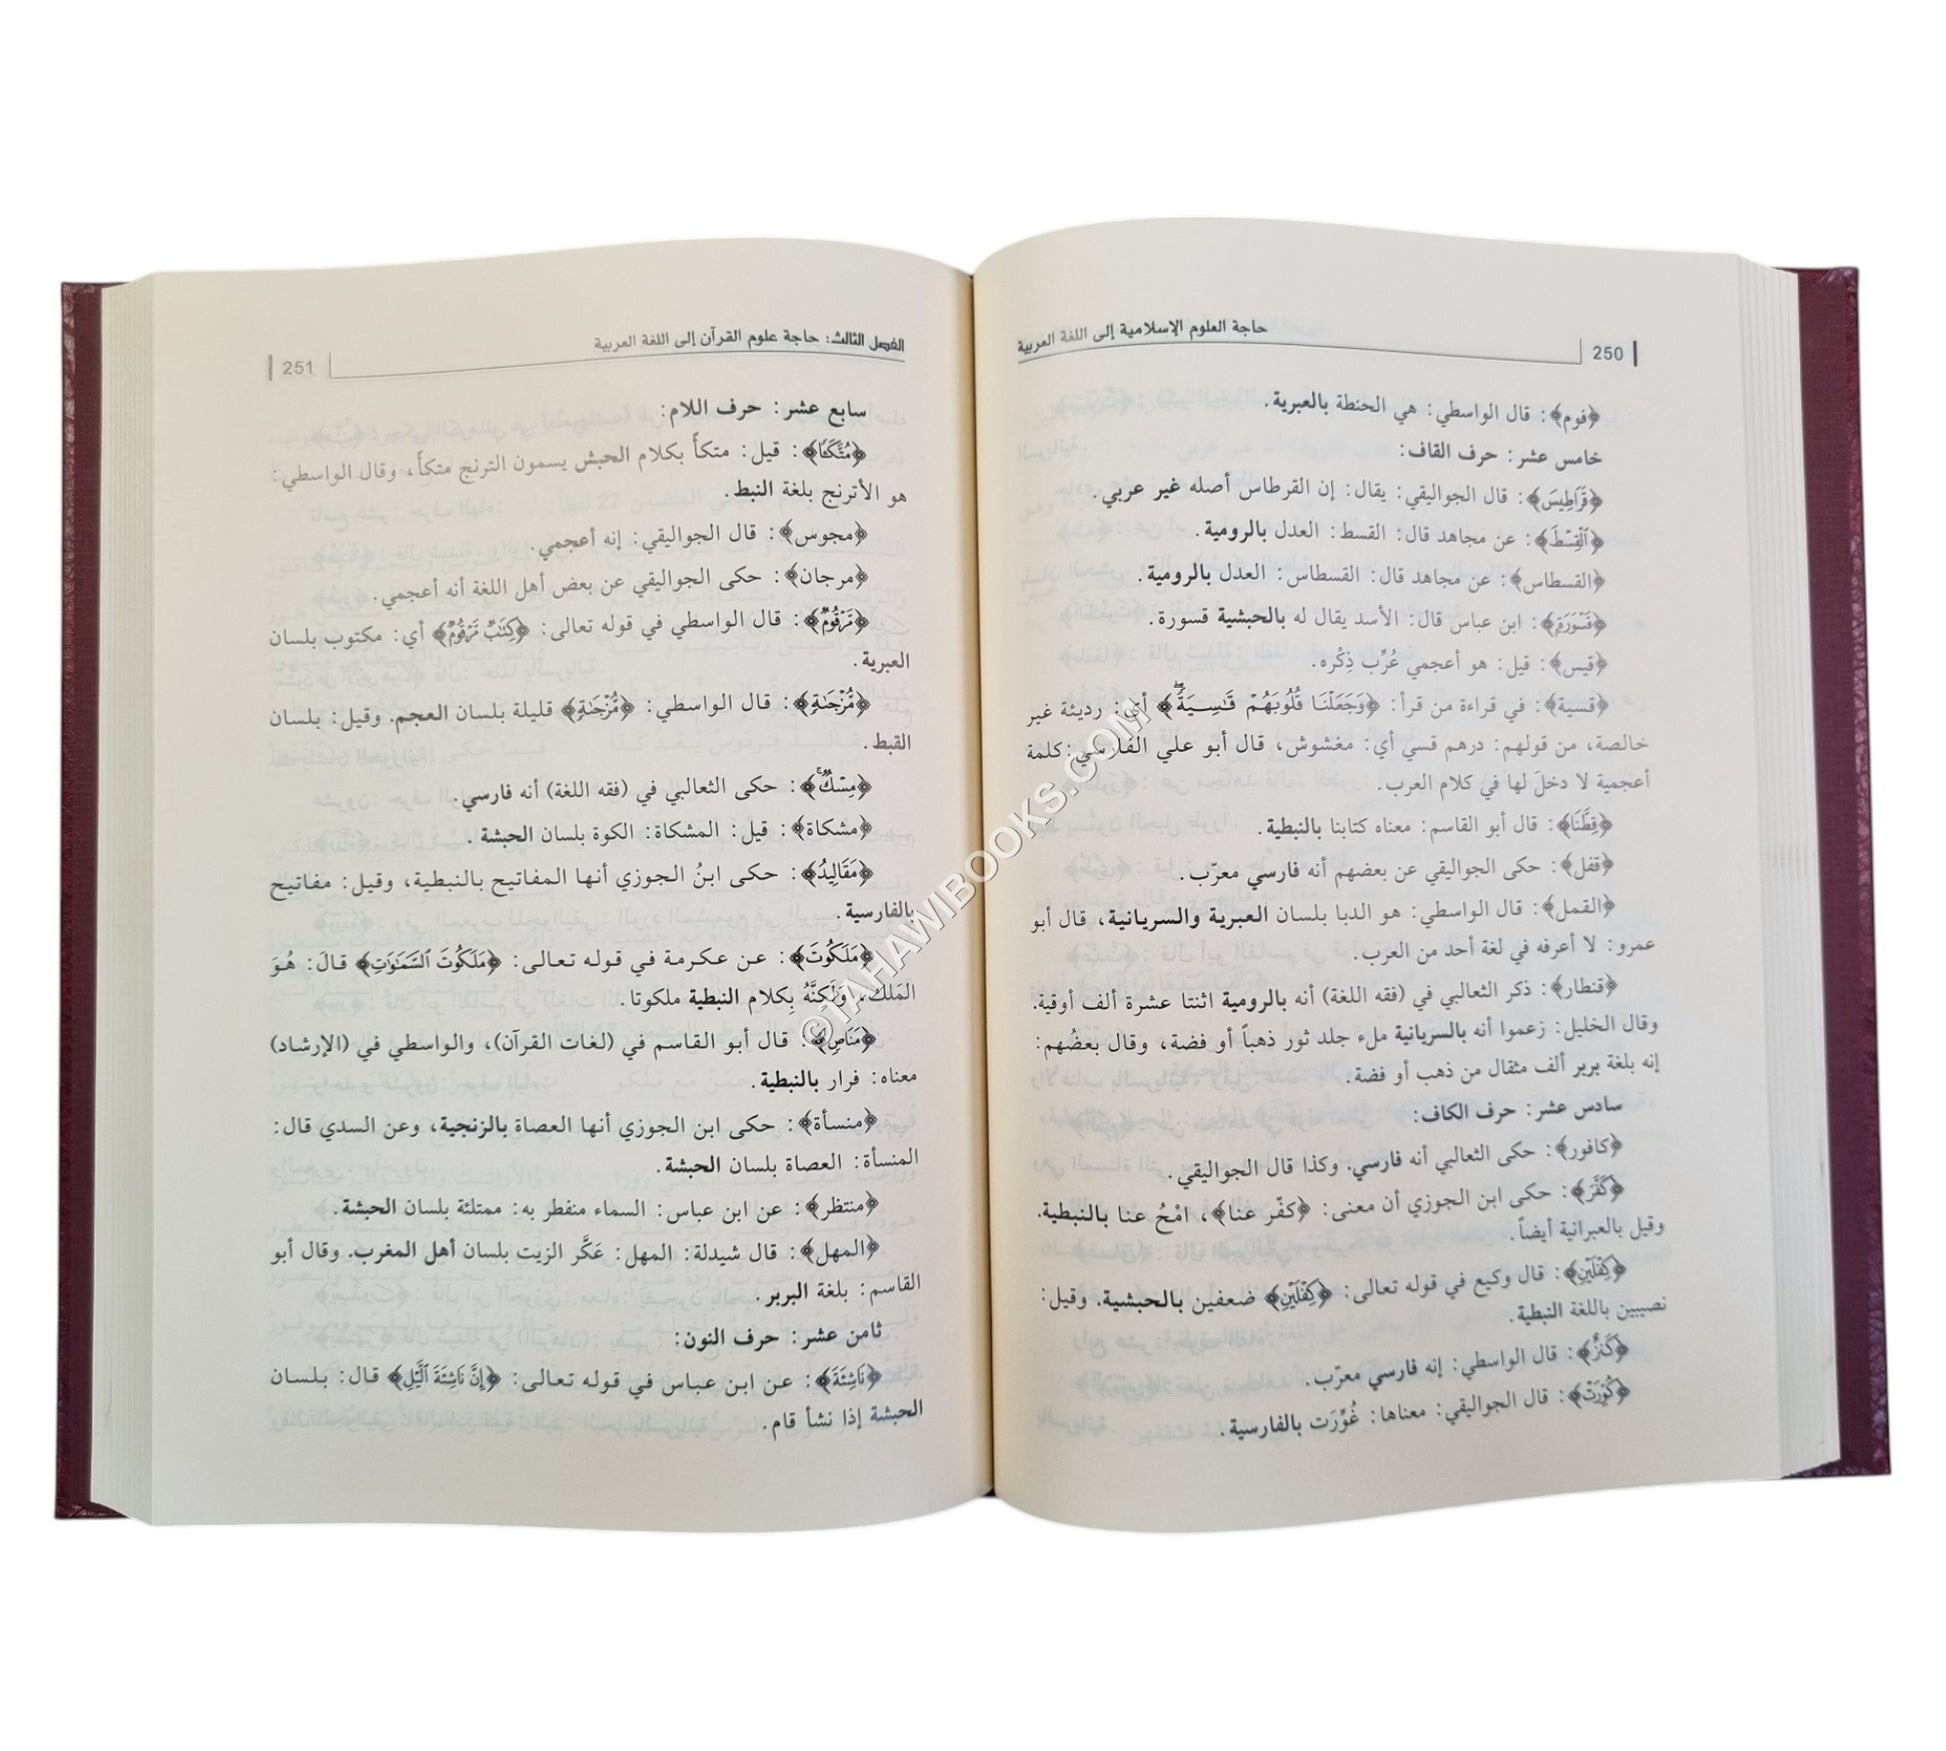 250
حاجة العلوم الإسلامية إلى اللغة العربية
﴿فوم﴾: قال الواسطي: هي الحنطة بالعبرية.
خامس عشر: حرف القاف:
﴿قَرَاطِيسَ﴾: قال الجواليقي: يقال: إن القرطاس أصله غير عربي.
﴿ٱلْقِسْطَ﴾: عن مجاهد قال: القسط: العدل بالرومية.
﴿القسطاس﴾: عن مجاهد قال: القسطاس: العدل بالرومية.
﴿قَسْوَرَةٍ﴾: ابن عباس قال: الأسد يقال له بالحبشية قسورة.
﴿قيس﴾: قيل: هو أعجمي عُرِّب ذِكْره.
﴿قسية﴾: في قراءة من قرأ: ﴿وَجَعَلْنَا قُلُوبَهُمْ قَٰسِيَةً﴾ أي: رديئة غير
خالصة، من قولهم: درهم قسي أي: مغشوش، قال أبو علي الفارسي: كلمة
أعجمية لا دخلَ لها في كلام العرب.
﴿قِطَّنَا﴾: قال أبو القاسم: معناه كتابنا بالنبطية.
﴿قفل﴾: حكى الجواليقي عن بعضهم أنه فارسي معرّب.
﴿القمل﴾: قال الواسطي: هو الدبا بلسان العبرية والسريانية، قال أبو
عمرو: لا أعرفه في لغة أحد من العرب.
﴿قنطار﴾: ذكر الثعالبي في (فقه اللغة) أنه بالرومية اثنتا عشرة ألف أوقية.
وقال الخليل: زعموا أنه بالسريانية ملء جلد ثور ذهباً أو فضة، وقال بعضُهم:
إنه بلغة بربر ألف مثقال من ذهب أو فضة.
سادس عشر: حرف الكاف:
﴿كافور﴾: حكى الثعالبي أنه فارسي. وكذا قال الجواليقي.
﴿كَفَّرَ﴾: حكى ابن الجوزي أن معنى: ﴿كفّر عنا﴾، امْحُ عنا بالنبطية.
وقيل بالعبرانية أيضاً.
﴿كِفْلَيْنِ﴾: قال وكيع في قوله تعالى: ﴿كِفْلَيْنِ﴾ ضعفين بالحبشية. وقيل:
نصيبين باللغة النبطية.
﴿كَنزٌ﴾: قال الواسطي: إنه فارسي معرّب.
﴿كُوِّرَتْ﴾: قال الجواليقي: معناها: غُوِّرَت بالفارسية.
الفصل الثالث: حاجة علوم القرآن إلى اللغة العربية
251
سابع عشر: حرف اللام:
﴿مُتَّكَـًٔا﴾: قيل: متكأً بكلام الحبش يسمون الترنج متكأً، وقال الواسطي:
هو الأترنج بلغة النبط.
﴿مجوس﴾: قال الجواليقي: إنه أعجمي.
﴿مرجان﴾: حكى الجواليقي عن بعض أهل اللغة أنه أعجمي.
﴿مَّرْقُومٌ﴾: قال الواسطي في قوله تعالى: ﴿كِتَٰبٌ مَّرْقُومٌ﴾ أي: مكتوب بلسان
العبرية.
﴿مُّزْجَىٰةٍ﴾: قال الواسطي: ﴿مُّزْجَىٰةٍ﴾ قليلة بلسان العجم. وقيل: بلسان
القبط.
﴿مِسْكٌ﴾: حكى الثعالبي في (فقه اللغة) أنه فارسي.
﴿مشكاة﴾: قيل: المشكاة: الكوة بلسان الحبشة.
﴿مَقَالِيدُ﴾: حكى ابنُ الجوزي أنها المفاتيح بالنبطية، وقيل: مفاتيح
بالفارسية.
﴿مَلَكُوتَ﴾: عن عكرمة في قوله تعالى: ﴿مَلَكُوتَ ٱلسَّمَٰوَٰتِ﴾ قالَ: هُوَ
المَلكُ، وَلَكِنَّهُ بِكلام النبطية ملكوتا.
﴿مَنَاصٍ﴾: قال أبو القاسم في (لغات القرآن)، والواسطي في (الإرشاد)
معناه: فرار بالنبطية.
﴿منسأة﴾: حكى ابن الجوزي أنها العصاة بالزنجية، وعن السدي قال:
المنسأة: العصاة بلسان الحبشة.
﴿منتظر﴾: عن ابن عباس: السماء منفطر به: ممتلئة بلسان الحبشة.
﴿المهل﴾: قال شيدلة: المهل: عَكَّر الزيت بلسان أهل المغرب. وقال أبو
القاسم: بلغة البربر.
ثامن عشر: حرف النون:
﴿نَاشِئَةَ﴾: عن ابن عباس في قوله تعالى: ﴿إِنَّ نَاشِئَةَ ٱلَّيْلِ﴾ قال: بلسان
الحبشة إذا نشأ قام.
©TAHAWIBOOKS.COM